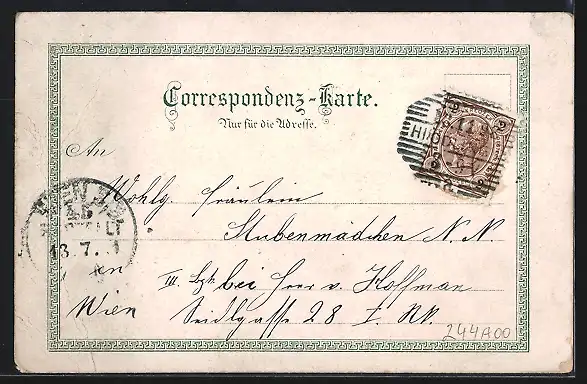 Correspondenz-Karte.
Nur für die Adresse.
An
Wohlg. Fräulein
Stubenmädchen N. N.
in
III. bzk. bei Herr v. Hoffman
Wien Seidlgasse 28 I.
244A00
2 2
WIEN
13.7.